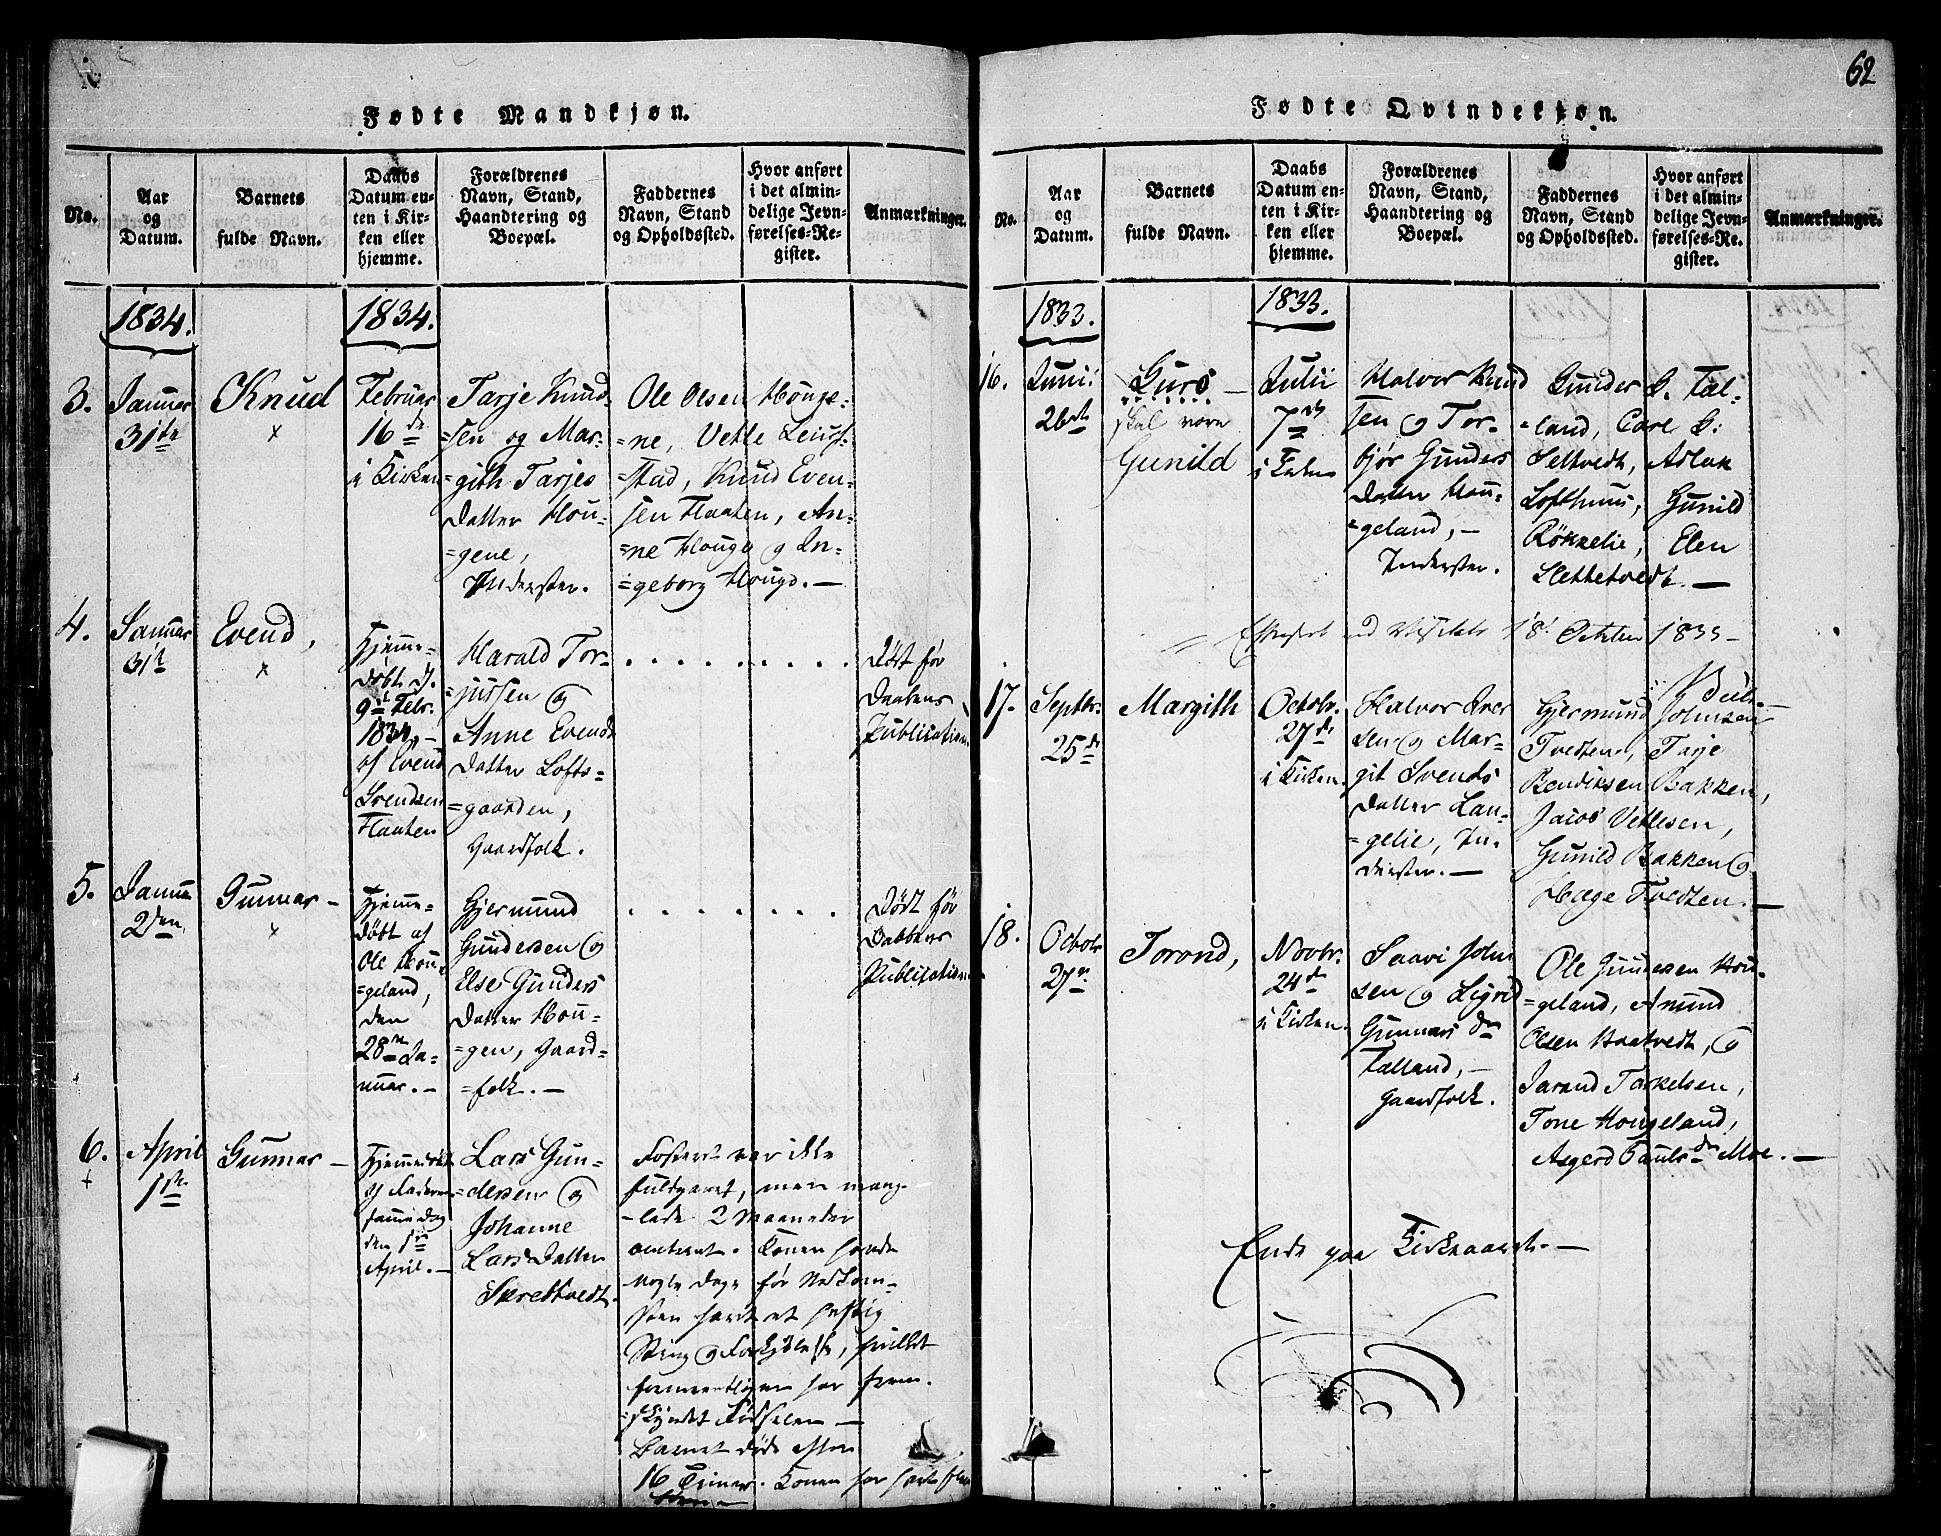 Fødte Mandkjøn.
No.
Aar
og
Datum.
Barnets
fulde Navn.
Daabs
Datum en-
ten i Kir-
ken eller
hjemme.
Forældrenes
Navn, Stand,
Haandtering og
Boepæl.
Faddernes
Navn, Stand
og Opholdssted.
Hvor anført
i det almin-
delige Jevn-
førelses-Re-
gister.
Anmærkninger.
1834.
1834.
3.
Januar
31te
Knud
×
Februar
16de
i Kirken
Tarje Knud-
=sen og Mar-
=gith Tarjes
Datter Hou-
=gene,
Inderster.
Ole Olsen Houge-
=ne, Vetle Leiuf-
=stad, Knud Even-
sen Flaaten, An-
=ne Houge og In-
=geborg Hougo. —
4.
Januar
31te
Evend,
×
Hjemme-
døbt d.
9de Febr.
1834, —
af Evend
Svendsen
Flaaten
Harald Tor-
=jussen og
Anne Evends
Datter Lofts-
=gaarden,
Gaardfolk.
. . . . . . . . . .
Død før
Daabens
Publication
5.
Januar
2den
Gunnar —
×
Hjemme-
døbt af
Ole Hou-
=geland,
den
28de Ja-
nuar. —
Gjermund
Gundersen og
Else Gunders
Datter Hou-
=gen, Gaard-
=folk. —
. . . . . . . . .
Død før
Daabens
Publication
6.
+
April
1ste
Gunnar —
Hjemmedøbt
af Faderen
samme Dag
den 1ste
April. —
Lars Gun-
=dersen og
Johanne
Lars Datter
Skrettvedt.
Fosteret var ikke
fuldbaaret, men mang-
=lede 2 Maaneder
omtrent. Konen havde
nogle Dage før Nedkom-
=sten havt et heftig
Sting og Forkjølelse, hvilket
formeentligen har frem-
=skyndet Fødselen —
Barnet døde efter
16 Timer. Konen har havt
Fødte Qvindekjøn.
62
No.
Aar
og
Datum.
Barnets
fulde Navn.
Daabs
Datum en-
ten i Kir-
ken eller
hjemme.
Forældrenes
Navn, Stand,
Haandtering og
Boepæl.
Faddernes
Navn, Stand
og Opholdssted.
Hvor anført
i det almin-
delige Jevn-
førelses-Re-
gister.
Anmærkninger.
1833.
1833.
16.
Junii
26de
Guro —
skal være
Gunild
Julii
7de
i Kirken
Halvor Knud
sen og Tor-
bjør Gunders
Datter Hou-
=geland, —
Inderster.
Gunder G. Tal-
=land, Carl G.
Seltvedt, Aslak
Lofthuus, Gunild
Røkkelie, Elen
Slettetvedt. —
Efterseet ved Visitats 18 October 1833 —
17.
Septbr.
25de
Margith
Octobr.
27de
i Kirken.
Halvor Iver
sen og Mar-
git Svends
Datter Lan-
=gelie, In-
derster. —
Gjermund Johnsen
Tvedten, Tarje
Bendiksen Bakken,
Jacob Vetlesen,
Gunild Bakken og
Hæge Tvedten. —
18.
Octobr
27de
Torond,
Novbr.
24de
i Kirken.
Saavi John
sen og Sigrid
Gunnars Dr
Talland, —
Gaardfolk.
Ole Gundersen Hou-
=geland, Amund
Olsen Haatvedt, og
Jarand Torkelsen,
Tone Hougeland,
Asgerd Pauls Dr Moe. —
Ende paa Kirkeaaret. —